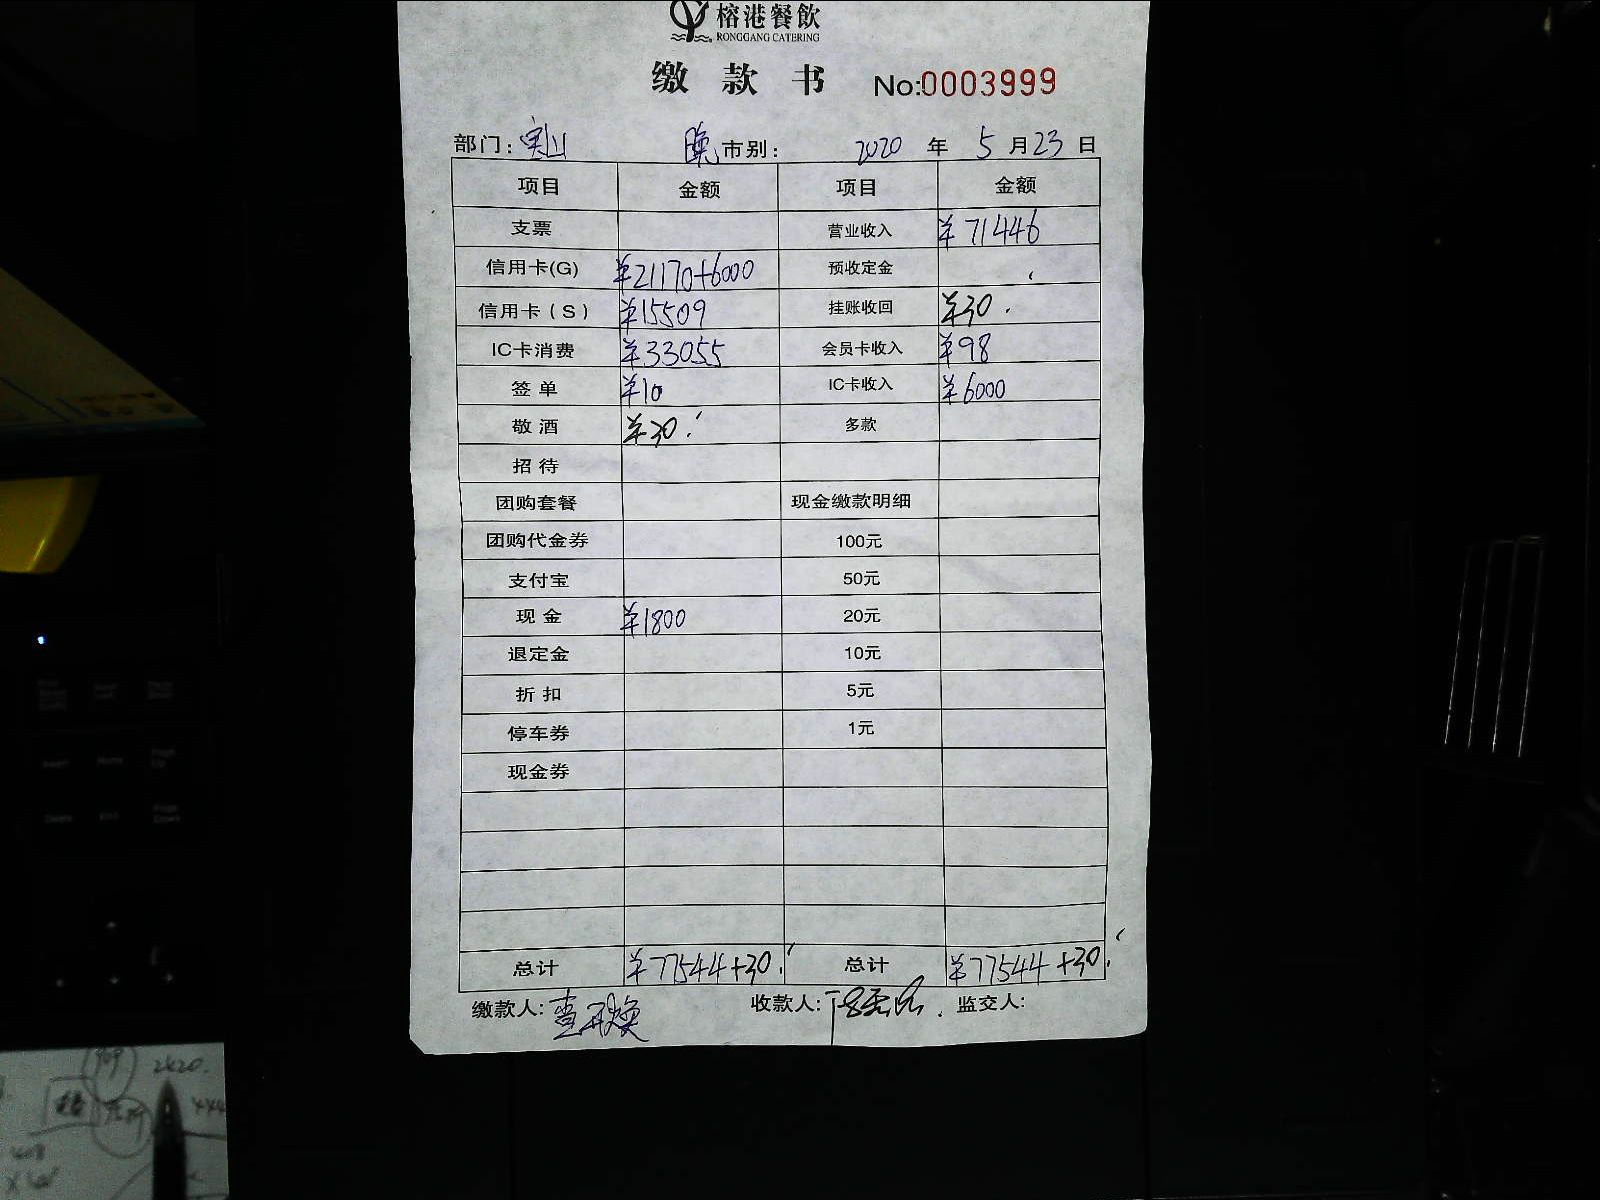 榕港餐飲
RONGGANG CATERING
缴 款 书 No:0003999
部门: 宝山 晚市别: 2020 年 5 月 23 日
项目 金额 项目 金额
支票 营业收入 ¥71446
信用卡(G) ¥21170+6000 预收定金
信用卡(S) ¥15509 挂账收回 ¥30.
IC卡消费 ¥33055 会员卡收入 ¥98
签单 ¥10 IC卡收入 ¥6000
敬酒 ¥30. 多款
招待
团购套餐 现金缴款明细
团购代金券 100元
支付宝 50元
现金 ¥1800 20元
退定金 10元
折扣 5元
停车券 1元
现金券
总计 ¥77544+30. 总计 ¥77544+30.
缴款人: 收款人: 监交人:
2420.